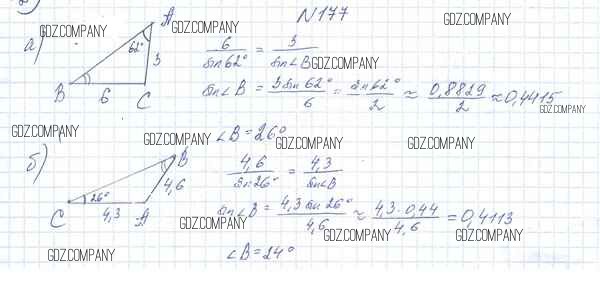 N177
GDZ.COMPANY GDZ.COMPANY GDZ.COMPANY
а) A 62° 3 B 6 C
6/sin62° = 3/sin∠B GDZ.COMPANY
sin∠B = 3sin62°/6 = sin62°/2 ≈ 0,8829/2 ≈ 0,4415
GDZ.COMPANY
∠B = 26°
GDZ.COMPANY GDZ.COMPANY GDZ.COMPANY GDZ.COMPANY
б) B 4,6 C 26° 4,3 A
4,6/sin26° = 4,3/sin∠B
sin∠B = 4,3 sin 26°/4,6 ≈ 4,3·0,44/4,6 = 0,4113
GDZ.COMPANY GDZ.COMPANY GDZ.COMPANY
∠B = 24°
GDZ.COMPANY